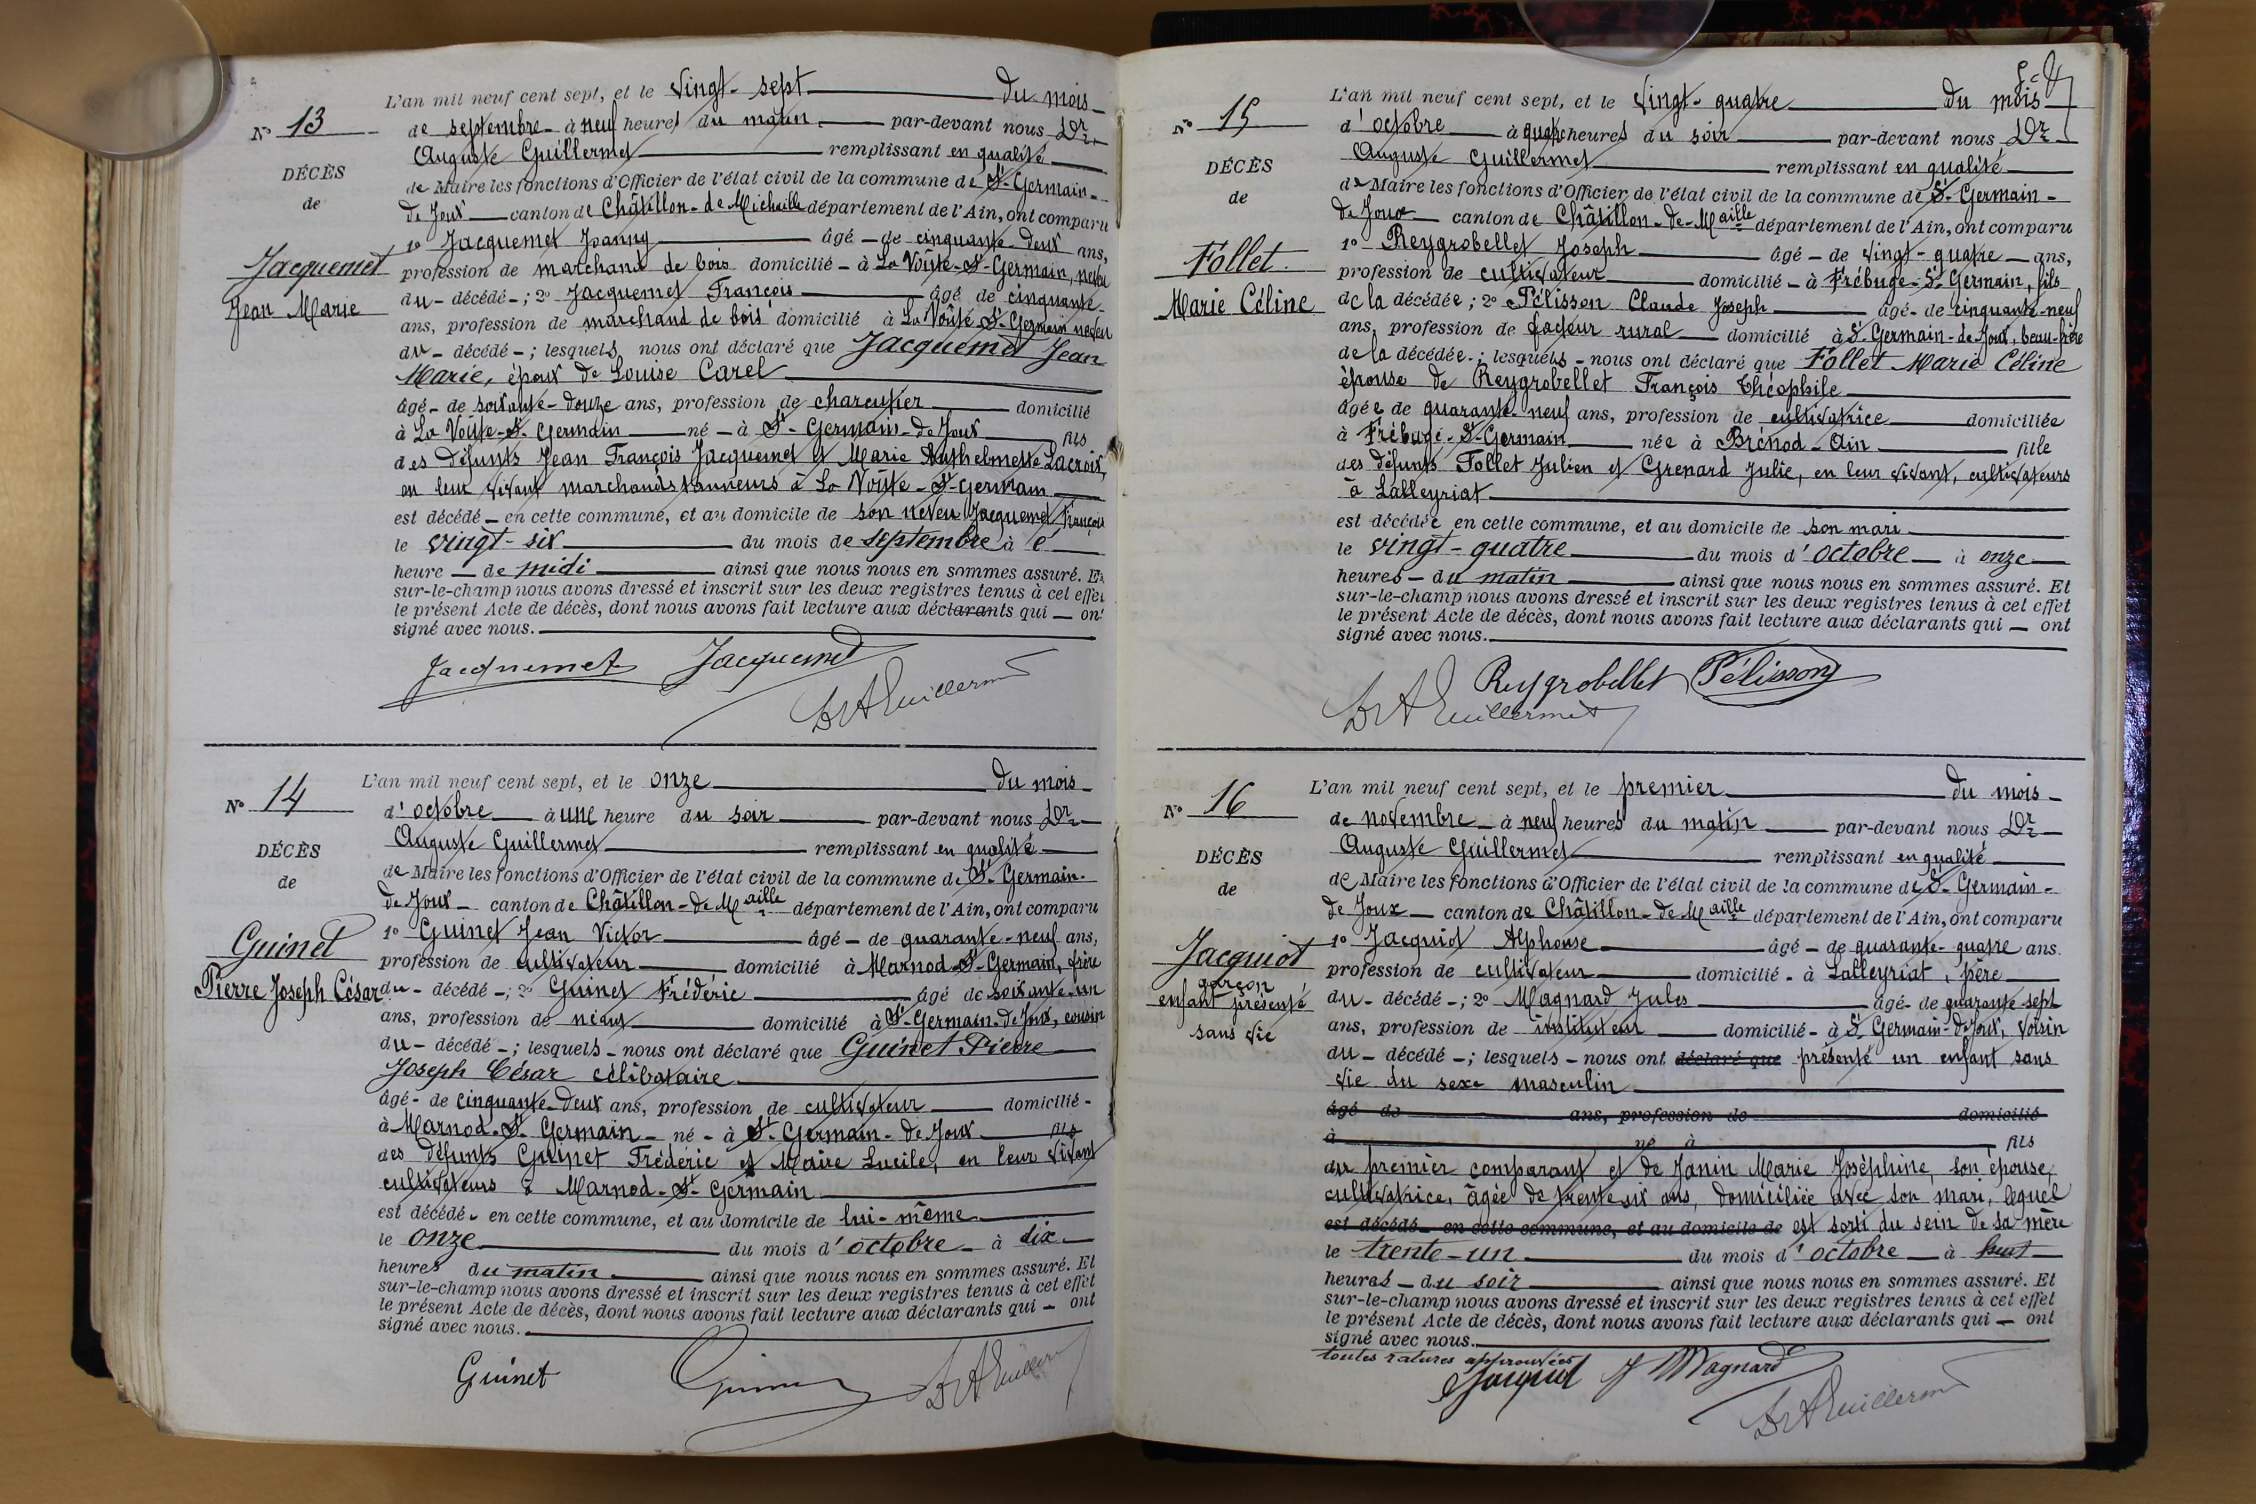 L'an mil neuf cent sept, et le vingt-sept du mois
N° 13
de septembre à neuf heures du matin par-devant nous Dr
Auguste Guillermet remplissant en qualité
DÉCÈS
de Maire les fonctions d'Officier de l'état civil de la commune de St-Germain-
de
de Joux canton de Châtillon-de-Michaille département de l'Ain, ont comparu
1° Jacquemet Joanny âgé de cinquante-deux ans,
Jacquemet
profession de marchand de bois domicilié à La Voûte-St-Germain, neveu
Jean Marie
du décédé; 2° Jacquemet François âgé de cinquante
ans, profession de marchand de bois domicilié à La Voûte St-Germain neveu
du décédé; lesquels nous ont déclaré que Jacquemet Jean
Marie, époux de Louise Carel
âgé de soixante-douze ans, profession de charcutier domicilié
à La Voûte-St-Germain né à St-Germain-de Joux fils
des défunts Jean François Jacquemet et Marie Anthelmette Lacroix,
en leur vivant marchands tanneurs à La Voûte-St-Germain
est décédé en cette commune, et au domicile de son neveu Jacquemet François
le vingt-six du mois de septembre à l'
heure de midi ainsi que nous nous en sommes assuré. Et
sur-le-champ nous avons dressé et inscrit sur les deux registres tenus à cet effet
le présent Acte de décès, dont nous avons fait lecture aux déclarants qui ont
signé avec nous.
Jacquemet Jacquemet
Dr A Guillermet
L'an mil neuf cent sept, et le onze du mois
N° 14
d'octobre à une heure du soir par-devant nous Dr
Auguste Guillermet remplissant en qualité
DÉCÈS
de Maire les fonctions d'Officier de l'état civil de la commune de St-Germain-
de
de Joux canton de Châtillon-de Maille département de l'Ain, ont comparu
1° Guinet Jean Victor âgé de quarante-neuf ans,
Guinet
profession de cultivateur domicilié à Marnod-St-Germain, frère
Pierre Joseph César
du décédé; 2° Guinet Frédéric âgé de soixante-un
ans, profession de néant domicilié à St-Germain-de Joux, cousin
du décédé; lesquels nous ont déclaré que Guinet Pierre
Joseph César célibataire
âgé de cinquante-deux ans, profession de cultivateur domicilié
à Marnod-St-Germain né à St-Germain-de Joux fils
des défunts Guinet Frédéric et Maire Lucile, en leur vivant
cultivateurs à Marnod-St-Germain
est décédé en cette commune, et au domicile de lui-même
le onze du mois d'octobre à dix
heures du matin ainsi que nous nous en sommes assuré. Et
sur-le-champ nous avons dressé et inscrit sur les deux registres tenus à cet effet
le présent Acte de décès, dont nous avons fait lecture aux déclarants qui ont
signé avec nous.
Guinet Guinet Dr A Guillermet
L'an mil neuf cent sept, et le vingt-quatre du mois
N° 15
d'octobre à quatre heures du soir par-devant nous Dr
Auguste Guillermet remplissant en qualité
DÉCÈS
de Maire les fonctions d'Officier de l'état civil de la commune de St-Germain-
de
de Joux canton de Châtillon-de-Maille département de l'Ain, ont comparu
1° Reygrobellet Joseph âgé de vingt-quatre ans,
Follet
profession de cultivateur domicilié à Frébuge-St-Germain, fils
Marie Céline
de la décédée; 2° Pélisson Claude Joseph âgé de cinquante-neuf
ans, profession de facteur rural domicilié à St-Germain-de Joux, beau-frère
de la décédée; lesquels nous ont déclaré que Follet Marie Céline
épouse de Reygrobellet François Théophile
âgée de quarante-neuf ans, profession de cultivatrice domiciliée
à Frébuge-St-Germain née à Brénod-Ain fille
des défunts Follet Julien et Grenard Julie, en leur vivant, cultivateurs
à Lalleyriat
est décédée en cette commune, et au domicile de son mari
le vingt-quatre du mois d'octobre à onze
heures du matin ainsi que nous nous en sommes assuré. Et
sur-le-champ nous avons dressé et inscrit sur les deux registres tenus à cet effet
le présent Acte de décès, dont nous avons fait lecture aux déclarants qui ont
signé avec nous.
Reygrobellet Pélisson
Dr A Guillermet
L'an mil neuf cent sept, et le premier du mois
N° 16
de novembre à neuf heures du matin par-devant nous Dr
Auguste Guillermet remplissant en qualité
DÉCÈS
de Maire les fonctions d'Officier de l'état civil de la commune de St-Germain-
de
de Joux canton de Châtillon-de Maille département de l'Ain, ont comparu
1° Jacquiot Alphonse âgé de quarante-quatre ans.
Jacquiot
profession de cultivateur domicilié à Lalleyriat, père
garçon
enfant présenté
du décédé; 2° Magnard Jules âgé de quarante-sept
sans vie
ans, profession de instituteur domicilié à St-Germain-de Joux, voisin
du décédé; lesquels nous ont déclaré que présenté un enfant sans
vie du sexe masculin
âgé de ans, profession de domicilié
à né à fils
du premier comparant et de Janin Marie Joséphine, son épouse,
cultivatrice, âgée de trente-six ans, domiciliée avec son mari, lequel
est décédé en cette commune, et au domicile de est sorti du sein de sa mère
le trente-un du mois d'octobre à huit
heures du soir ainsi que nous nous en sommes assuré. Et
sur-le-champ nous avons dressé et inscrit sur les deux registres tenus à cet effet
le présent Acte de décès, dont nous avons fait lecture aux déclarants qui ont
signé avec nous.
toutes ratures approuvées
Jacquiot J Magnard
Dr A Guillermet